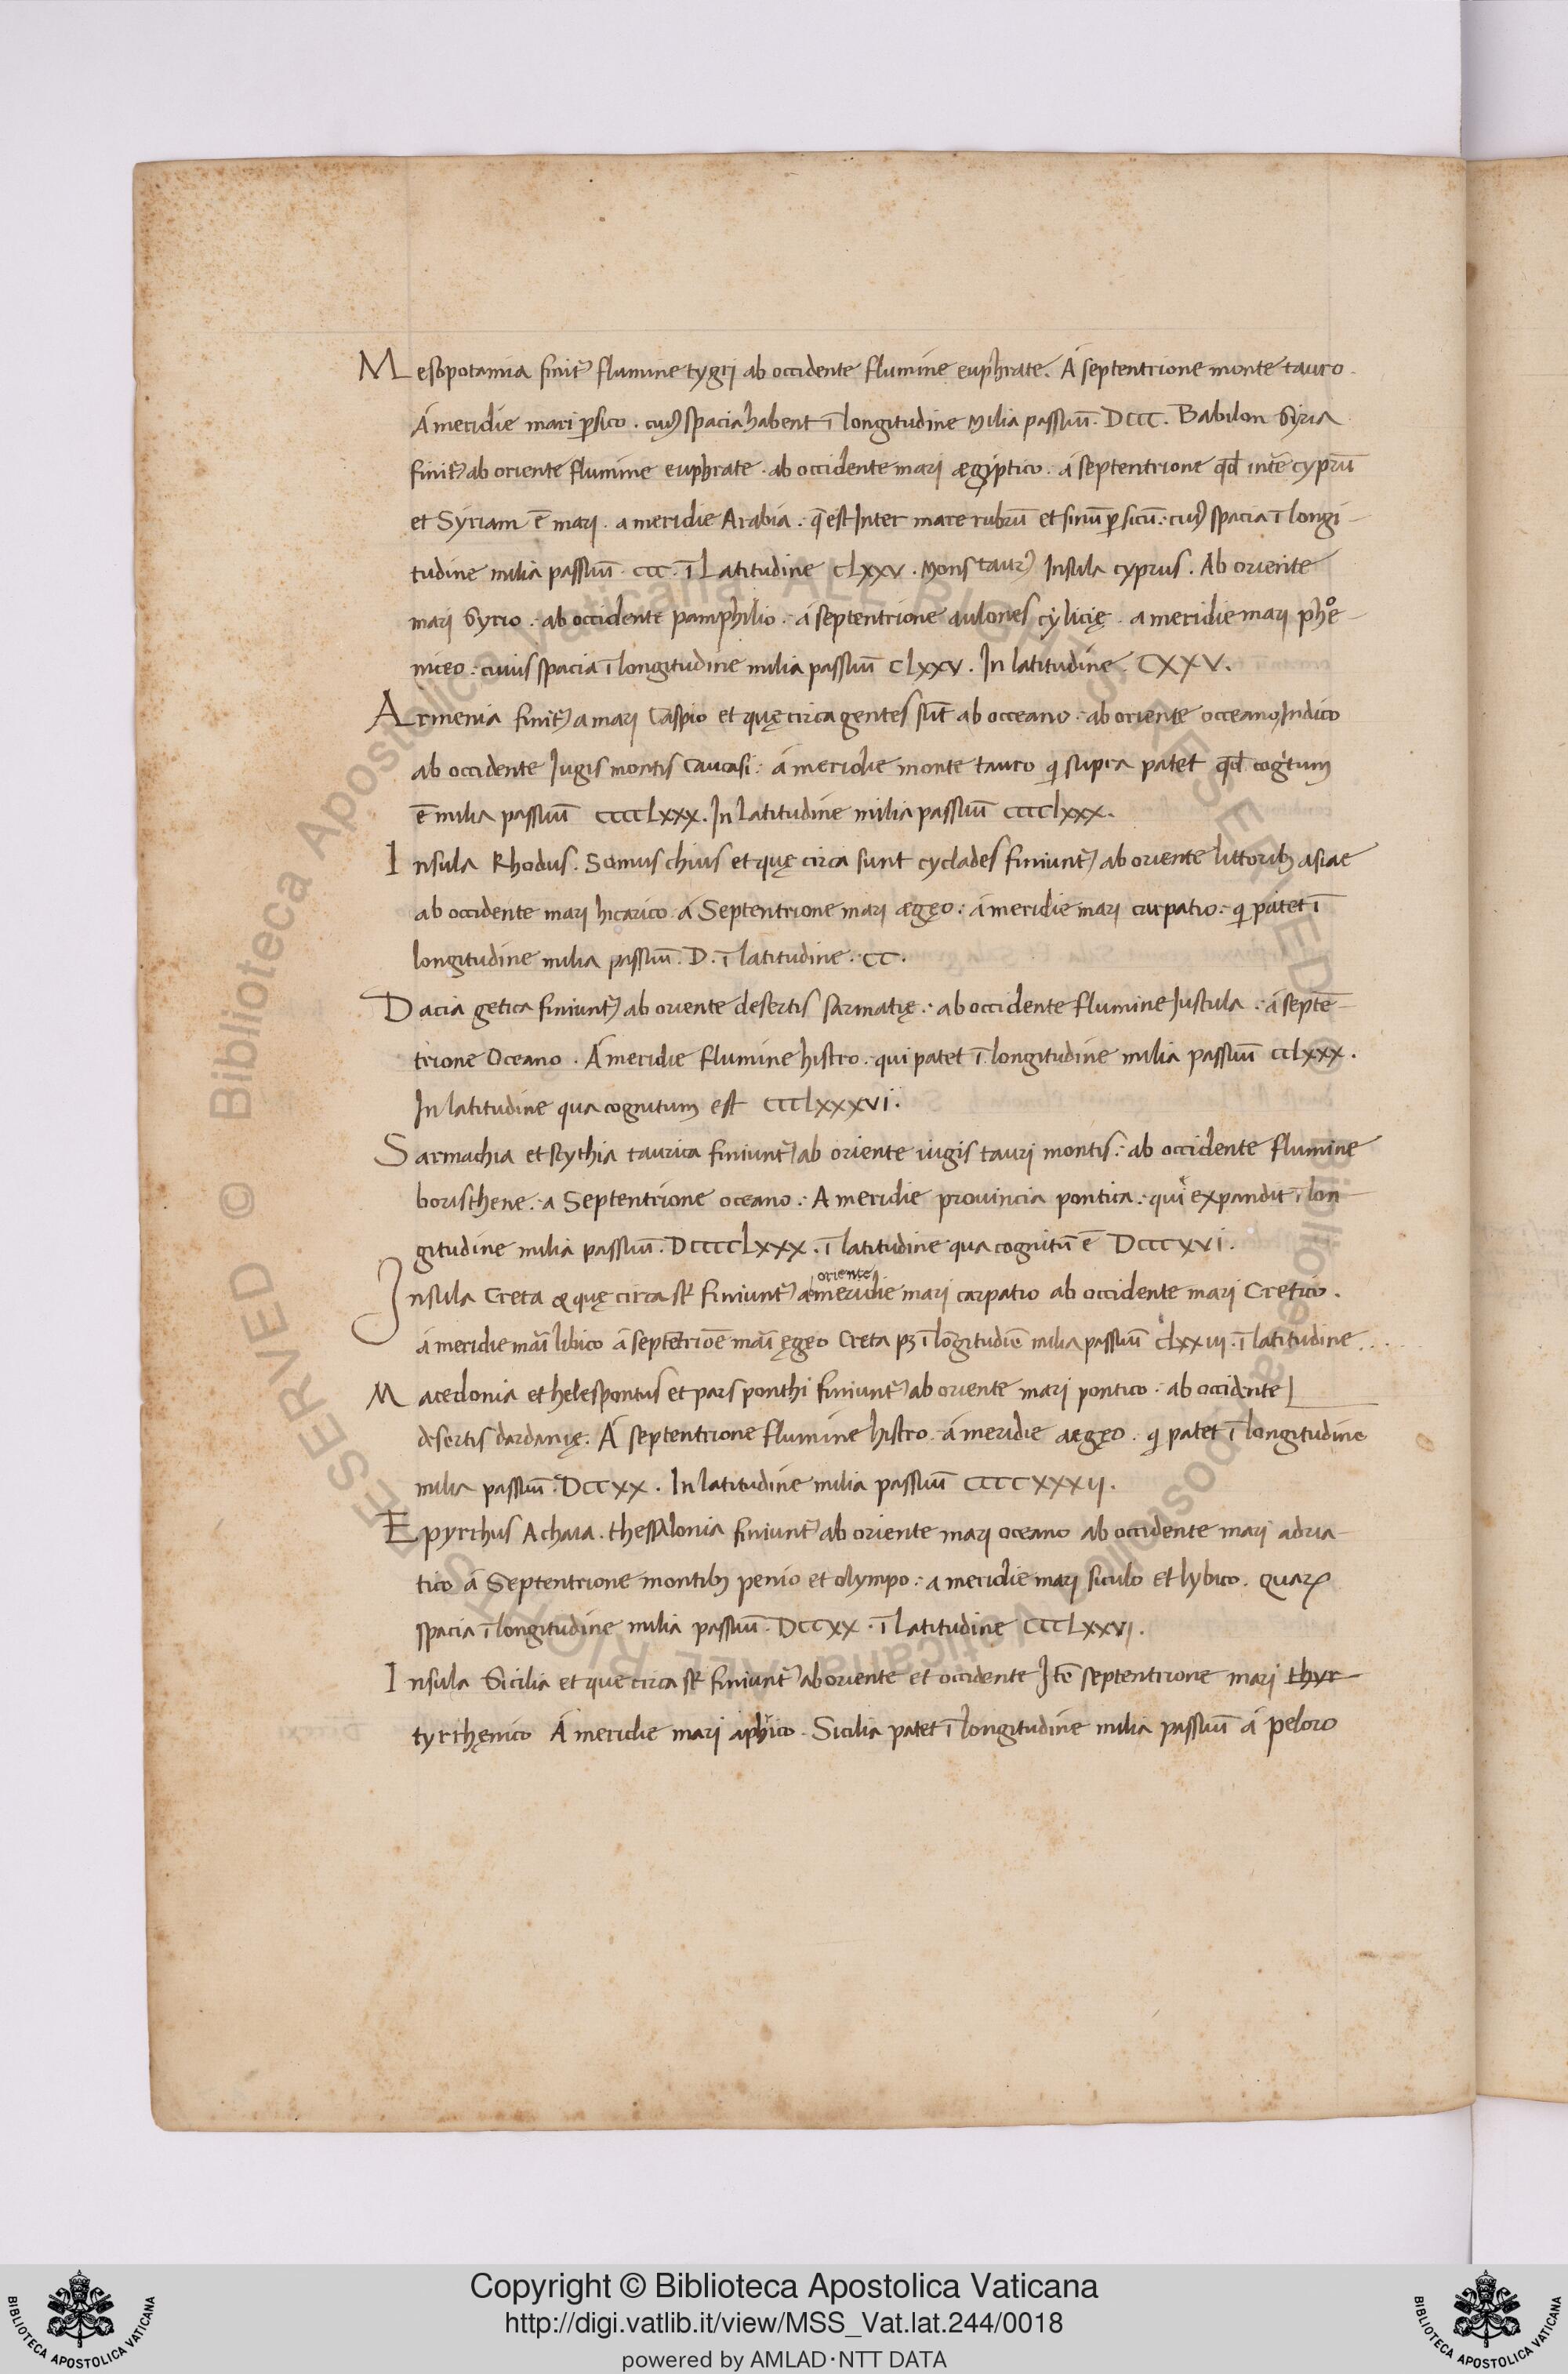 Mesopotamia finit᷑ flumine tygrj ab occidente flumine euphrate. Á septentrione monte tauro.
Á meridie mari ꝑsico. cuiꝰ spacia habent ī longitudine Milia passuū. DCCC. Babilon Syria
finit᷑ ab oriente flumine euphrate. ab occidente marj ægyptico. á septentrione qđ int̄e cyprū
et Syriam ē marj. a meridie Arabia. q̄ est Inter mare rubrū et sinū ꝑsicū: cuiꝰ spacia ī longi-
tudine milia passuū CCC. ī Latitudine CLXXV. Mons taurꝰ Insula cyprus. Ab oriente
marj Syrio. ab occidente pamphilio. á septentrione aulones cylicię. a meridie marj phoe-
niceo: cuius spacia ī longitudine milia passuū CLXXV. In latitudine CXXV.
Armenia finit᷑ a marj Caspio et quę circa gentes sūt ab occeano. ab oriente occeano Indico
ab occidente Jugis montis Caucasi: á meridie monte tauro qi supra patet qđ cogtum
ē milia passuū CCCCLXXX. In Latitudine milia passuū CCCCLXXX.
Insula Rhodus. Samus chius et quę circa sunt cyclades finiunt᷑ ab oriente littoribꝫ asiae
ab occidente mari hicarico á Septentrione mari ægęo: á meridie mari carpatio: qi patet ī
longitudine milia passuū. D. ī latitudine. CC.
Dacia getica finiunt᷑ ab oriente desertis sarmatię: ab occidente flumine Justula. á septē-
trione Oceano. Á meridie flumine histro. qui patet ī longitudine milia passuū CCLXXX.
In latitudine qua cognitum est CCCLXXXVI.
Sarmachia et scythia taurica finiunt᷑ ab oriente iugis tauri montis: ab occidente flumine
boristhene: a Septentrione oceano: A meridie prouincia pontica: qui expandit ī lon-
gitudine milia passuū. DCCCCLXXX. ī latitudine qua cognitū ē DCCCXVI.
oriente
Insula Creta & quę circa sť finiunt᷑ a meridie mari carpatio ab occidente mari Cretico.
á meridie māi libico á septētrioē māi ęgęo Creta pꝫ ī lōgitudiē milia passuū CLXXIII. ī latitudine...
Macedonia et helespontus et pars ponthi finiunt᷑ ab oriente mari pontico. ab occidente
desertis dardanię. Á septentrione flumine histro. á meridie aegęo. qi patet ī longitudine
milia passuū. DCCXX. In latitudine milia passuū CCCCXXXIJ.
Epyrrhus Achaia. thessalonia finiunt᷑ ab oriente mari oceano ab occidente marj adria-
tico á Septentrione montibꝫ penio et olympo: a meridie marj siculo et lybico. quaꝝ
spacia ī longitudine milia passuū. DCCXX. ī Latitudine CCCLXXVJ.
Insula Sicilia et que circa sť finiunt᷑ ab oriente et occidente Jtē septentrione marj thyr
tyrrhęnico Á meridie marj aphrico. Sicilia patet ī longitudine milia passuū á peloro
Copyright © Biblioteca Apostolica Vaticana
http://digi.vatlib.it/view/MSS_Vat.lat.244/0018
powered by AMLAD·NTT DATA